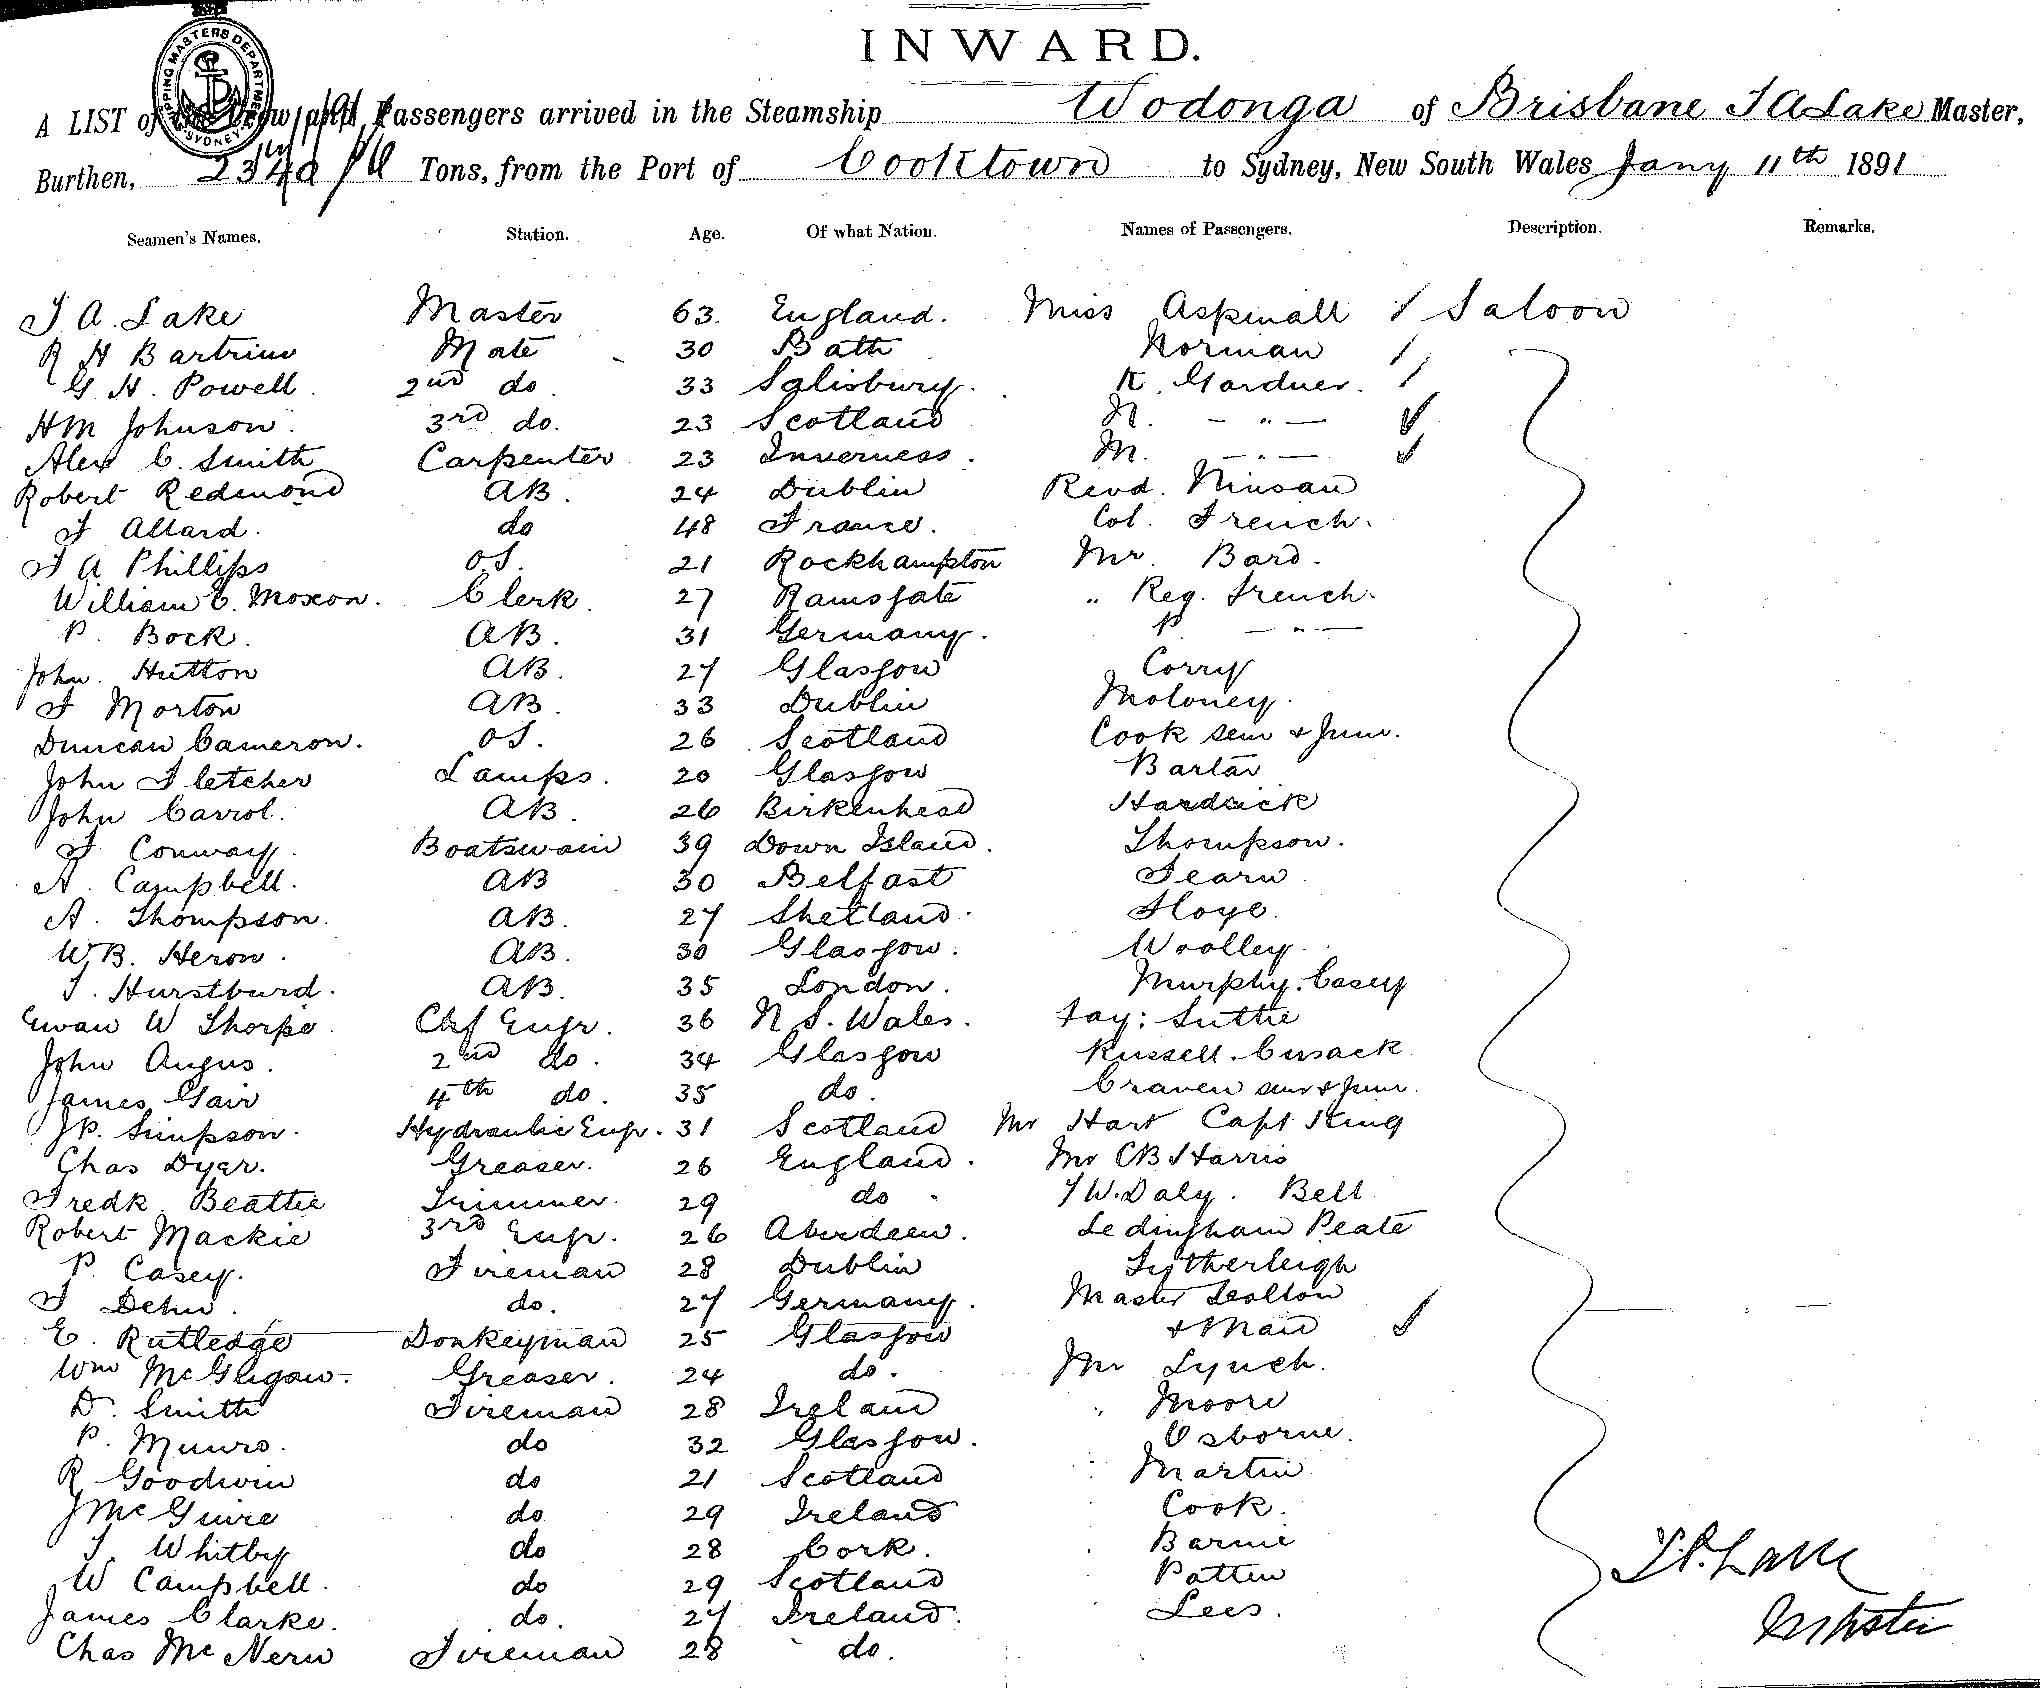 SHIPPING MASTERS DEPARTMENT SYDNEY
INWARD.
A LIST of the Crew and Passengers arrived in the Steamship Wodonga of Brisbane T A Lake Master,
Burthen, Tons, from the Port of Cooktown to Sydney, New South Wales Jany 11th 1891
Seamen's Names. Station. Age. Of what Nation. Names of Passengers. Description. Remarks.
T A Lake Master 63 England. Miss Aspinall Saloon
R H Bartrim Mate 30 Bath Norman
G H. Powell 2nd do. 33 Salisbury. K. Gardner.
HM Johnson. 3rd do. 23 Scotland N. - " -
Alex C. Smith Carpenter 23 Inverness. M. - " -
Robert Redmond AB. 24 Dublin Revd.
F Allard. do 48 France. Col. French.
F A Phillips OS. 21 Rockhampton Mr. Bard.
William C. Moxon. Clerk. 27 Ramsgate " Reg. French.
P. Bock. AB. 31 Germany. P - " -
John Hutton AB. 27 Glasgow Corry
F Morton AB. 33 Dublin Moloney.
Duncan Cameron. OS. 26 Scotland Cook senr & Junr.
John Fletcher Lamps. 20 Glasgow
John Carrol. AB. 26 Birkenhead
F Conway. Boatswain 39 Down Island. Thompson.
A. Campbell. AB 30 Belfast Fearn
A. Thompson. AB. 27 Shetland. Floye.
W.B. Heron. AB. 30 Glasgow. Woolley.
T. Hurstburd. AB. 35 London. Murphy. Casey
Ewan W Thorpe. Chf Engr. 36 N. S. Wales. Fay: Suttie
John Angus. 2nd do. 34 Glasgow Russell. Cusack
James Gair 4th do. 35 do. Craven senr & Junr.
J.P. Simpson. Hydraulic Engr. 31 Scotland Mr Hart Capt King
Chas Dyer. Greaser. 26 England. Mr CB Harris
Fredk Beattie Trimmer. 29 do. T W. Daly. Bell
Robert Mackie 3rd Engr. 26 Aberdeen. Ledingham Peate
P. Casey. Fireman 28 Dublin
F Dehn. do. 27 Germany. Master
E. Rutledge Donkeyman 25 Glasgow & Maid
Wm McGligan. Greaser. 24 do. Mr Lynch.
D. Smith Fireman 28 Ireland " Moore
P. Munro. do 32 Glasgow. Osborne.
R Goodwin do 21 Scotland Martin
J McGuire do 29 Ireland Cook.
T Whitby do 28 Cork. Barnie
W Campbell. do 29 Scotland Patten
James Clarke. do. 27 Ireland. Lees.
Chas McNern Fireman 28 do.
T.A. Lake
Master